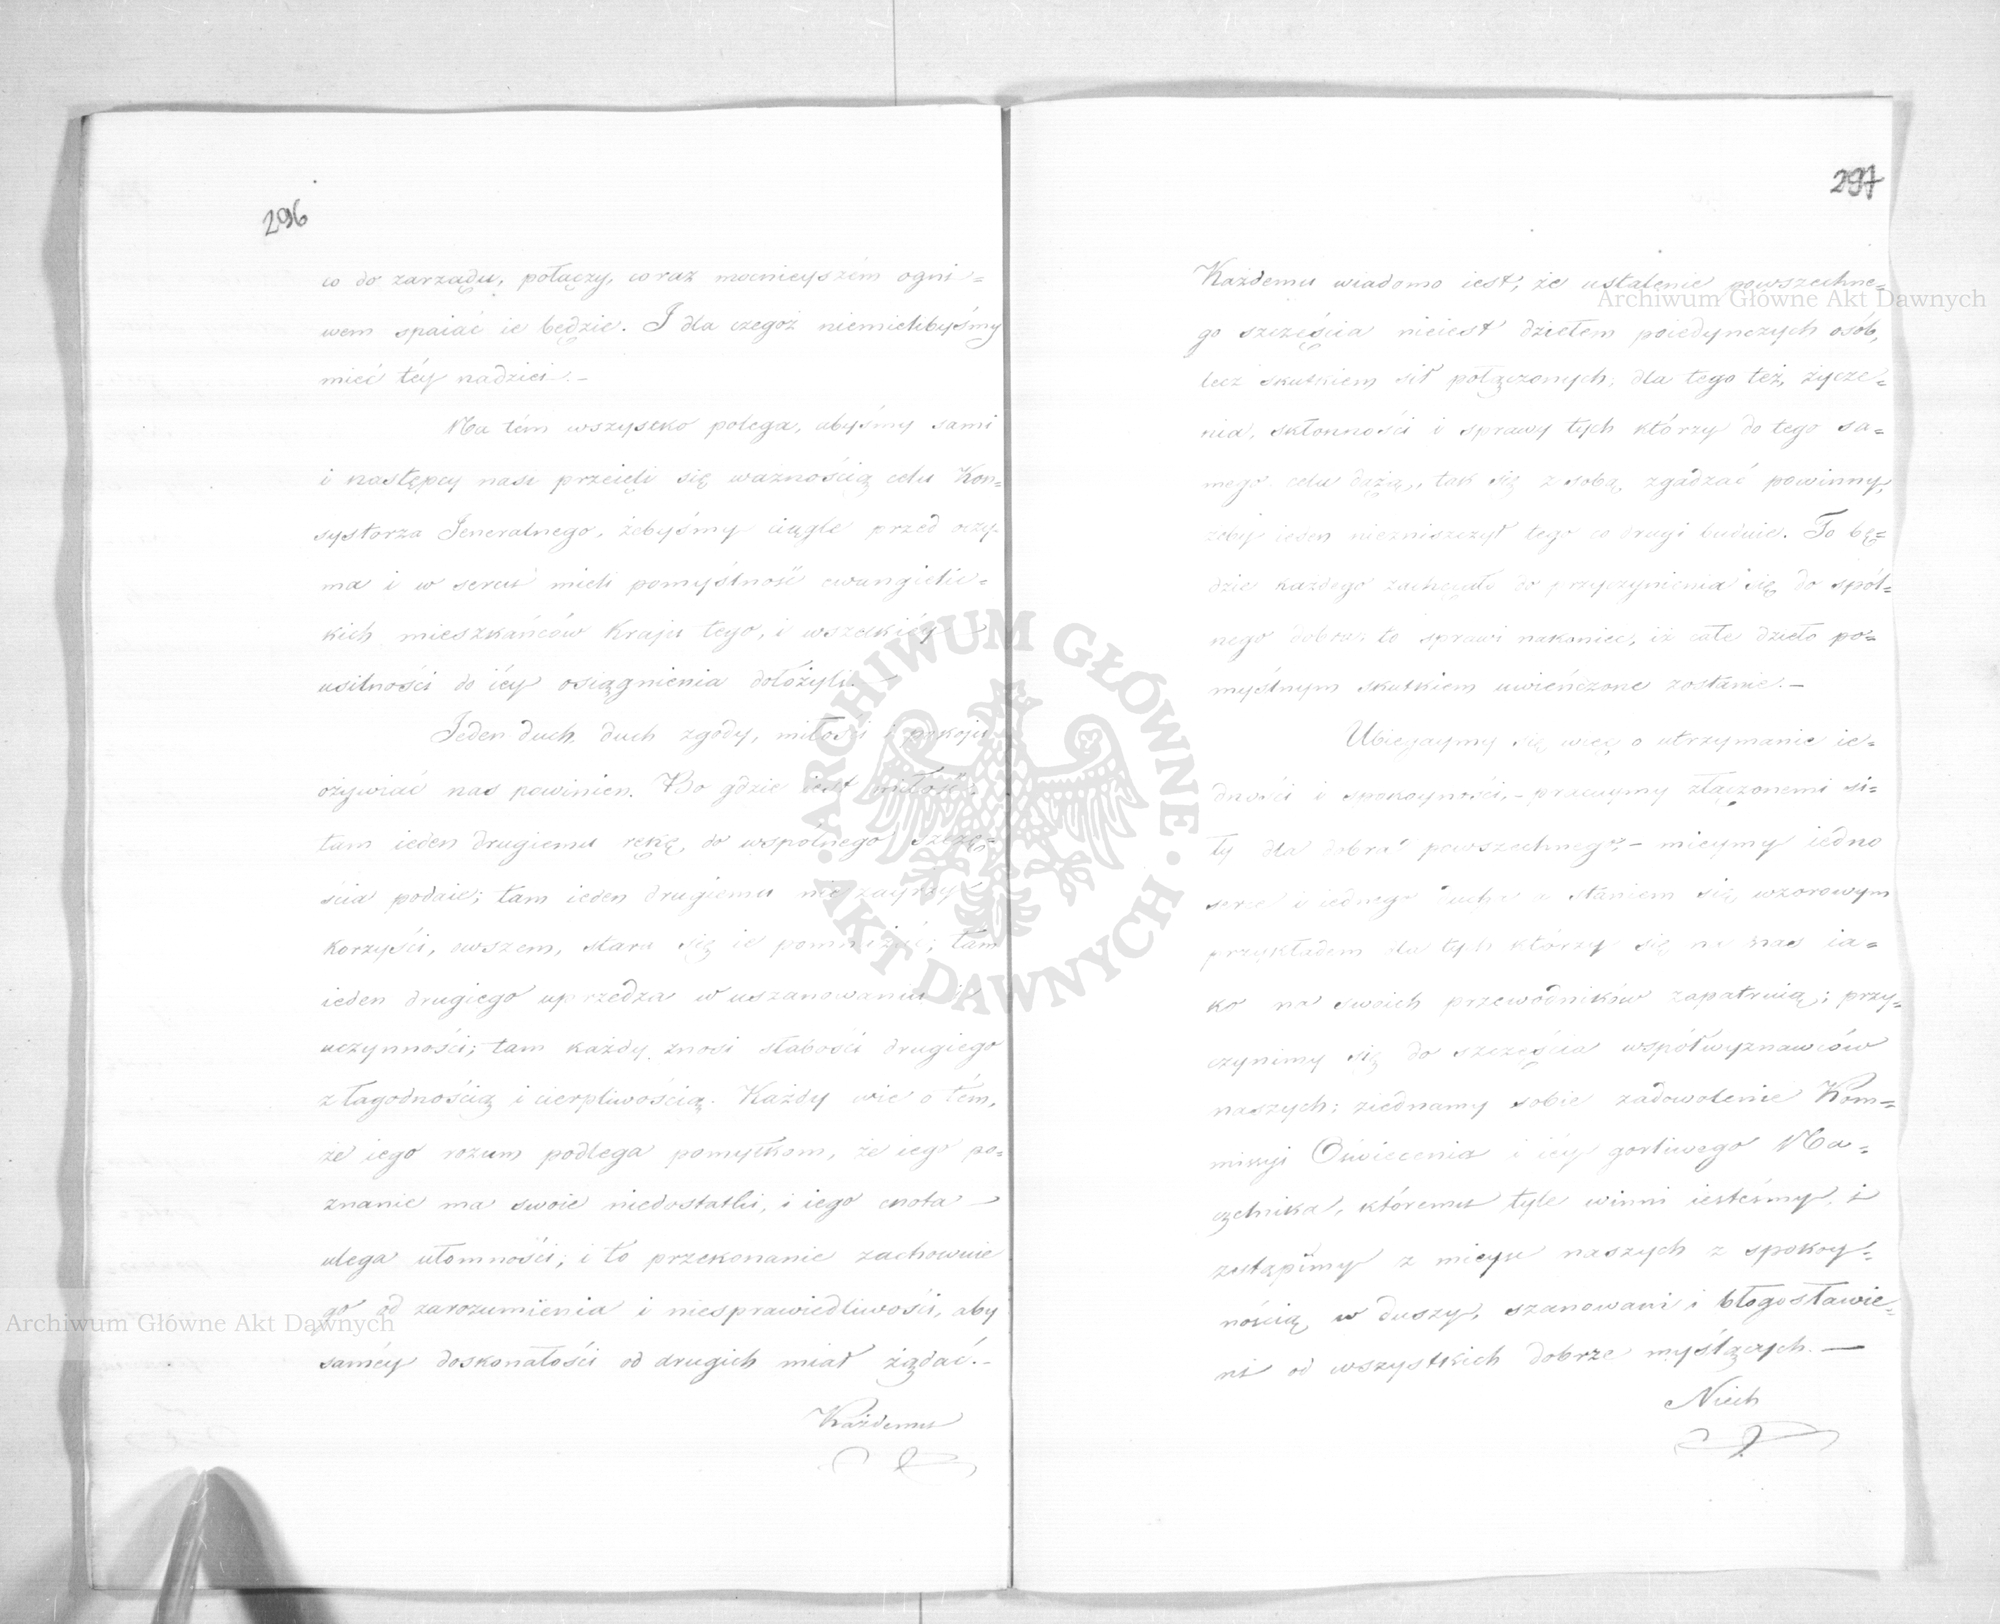 296
co do zarządu, połączy, coraz mocnieyszém ogni=
wem spaiać ie będzie. I dla czegoż niemielibyśmy
mieć téy nadziei.–
Na tém wszystko polega, abyśmy sami
i następcy nasi przeięli się ważnością celu Kon=
systorza Jeneralnego, żebyśmy ciągle przed oczy
ma i w sercu mieli pomyślność ewangielic=
kich mieszkańców Kraju tego, i wszelkiéy
usilności do iéy osiągnienia dołożyli.–
Jeden duch, duch zgody, miłości i pokoju
ożywiać nas powinien. Bo gdzie iest miłość,
tam ieden drugiemu rękę, do wspólnego szczę=
ścia podaie; tam ieden drugiemu nie zayrzy
korzyści, owszem, stara się ie pomnożyć; tam
ieden drugiego uprzedza w uszanowaniu i
uczynności; tam każdy znosi słabości drugiego
z łagodnością i cierpliwością. Każdy wie o tém,
że iego rozum podlega pomyłkom, że iego po=
znanie ma swoie niedostatki, i iego cnota –
ulega ułomności; i to przekonanie zachowuie
go od zarozumienia i niesprawiedliwości, aby
saméy doskonałości od drugich miał żądać.–
Każdemu
297
Każdemu wiadomo iest, że ustalenie powszechne=
go szczęścia nieiest dziełem poiedynczych osób,
lecz skutkiem sił połączonych; dla tego też, życze=
nia, skłonności i sprawy tych którzy do tego sa=
mego celu dążą, tak się z sobą zgadzać powinny,
żeby ieden niezniszczył tego co drugi buduie. To bę=
dzie każdego zachęcało do przyczynienia się do spól=
nego dobra, to sprawi nakoniec, iż całe dzieło po=
myślnym skutkiem uwieńczone zostanie.–
Ubiegaymy się więc o utrzymanie ie=
dności i spokoyności,– pracuymy złączonemi si=
ły dla dobra powszechnego,– mieymy iedno
serce i iednego ducha a staniem się wzorowym
przykładem dla tych którzy się na nas ia=
ko na swoich przewodników zapatruią; przy=
czynimy się do szczęścia współwyznawców
naszych; ziednamy sobie zadowolenie Kom=
missyi Oświecenia i iéy gorliwego Na=
czelnika, któremu tyle winni iesteśmy, i
zstąpimy z mieysc naszych z spokoy=
nością w duszy, szanowani i błogosławie=
ni od wszystkich dobrze myślących.–
Niech
Archiwum Główne Akt Dawnych
Archiwum Główne Akt Dawnych
ARCHIWUM GŁÓWNE
AKT DAWNYCH